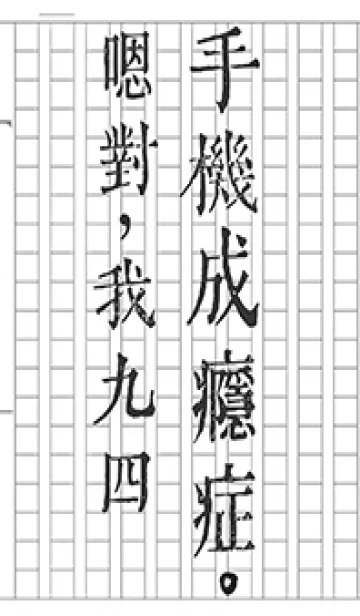 手機成癮症。
嗯對，我九四